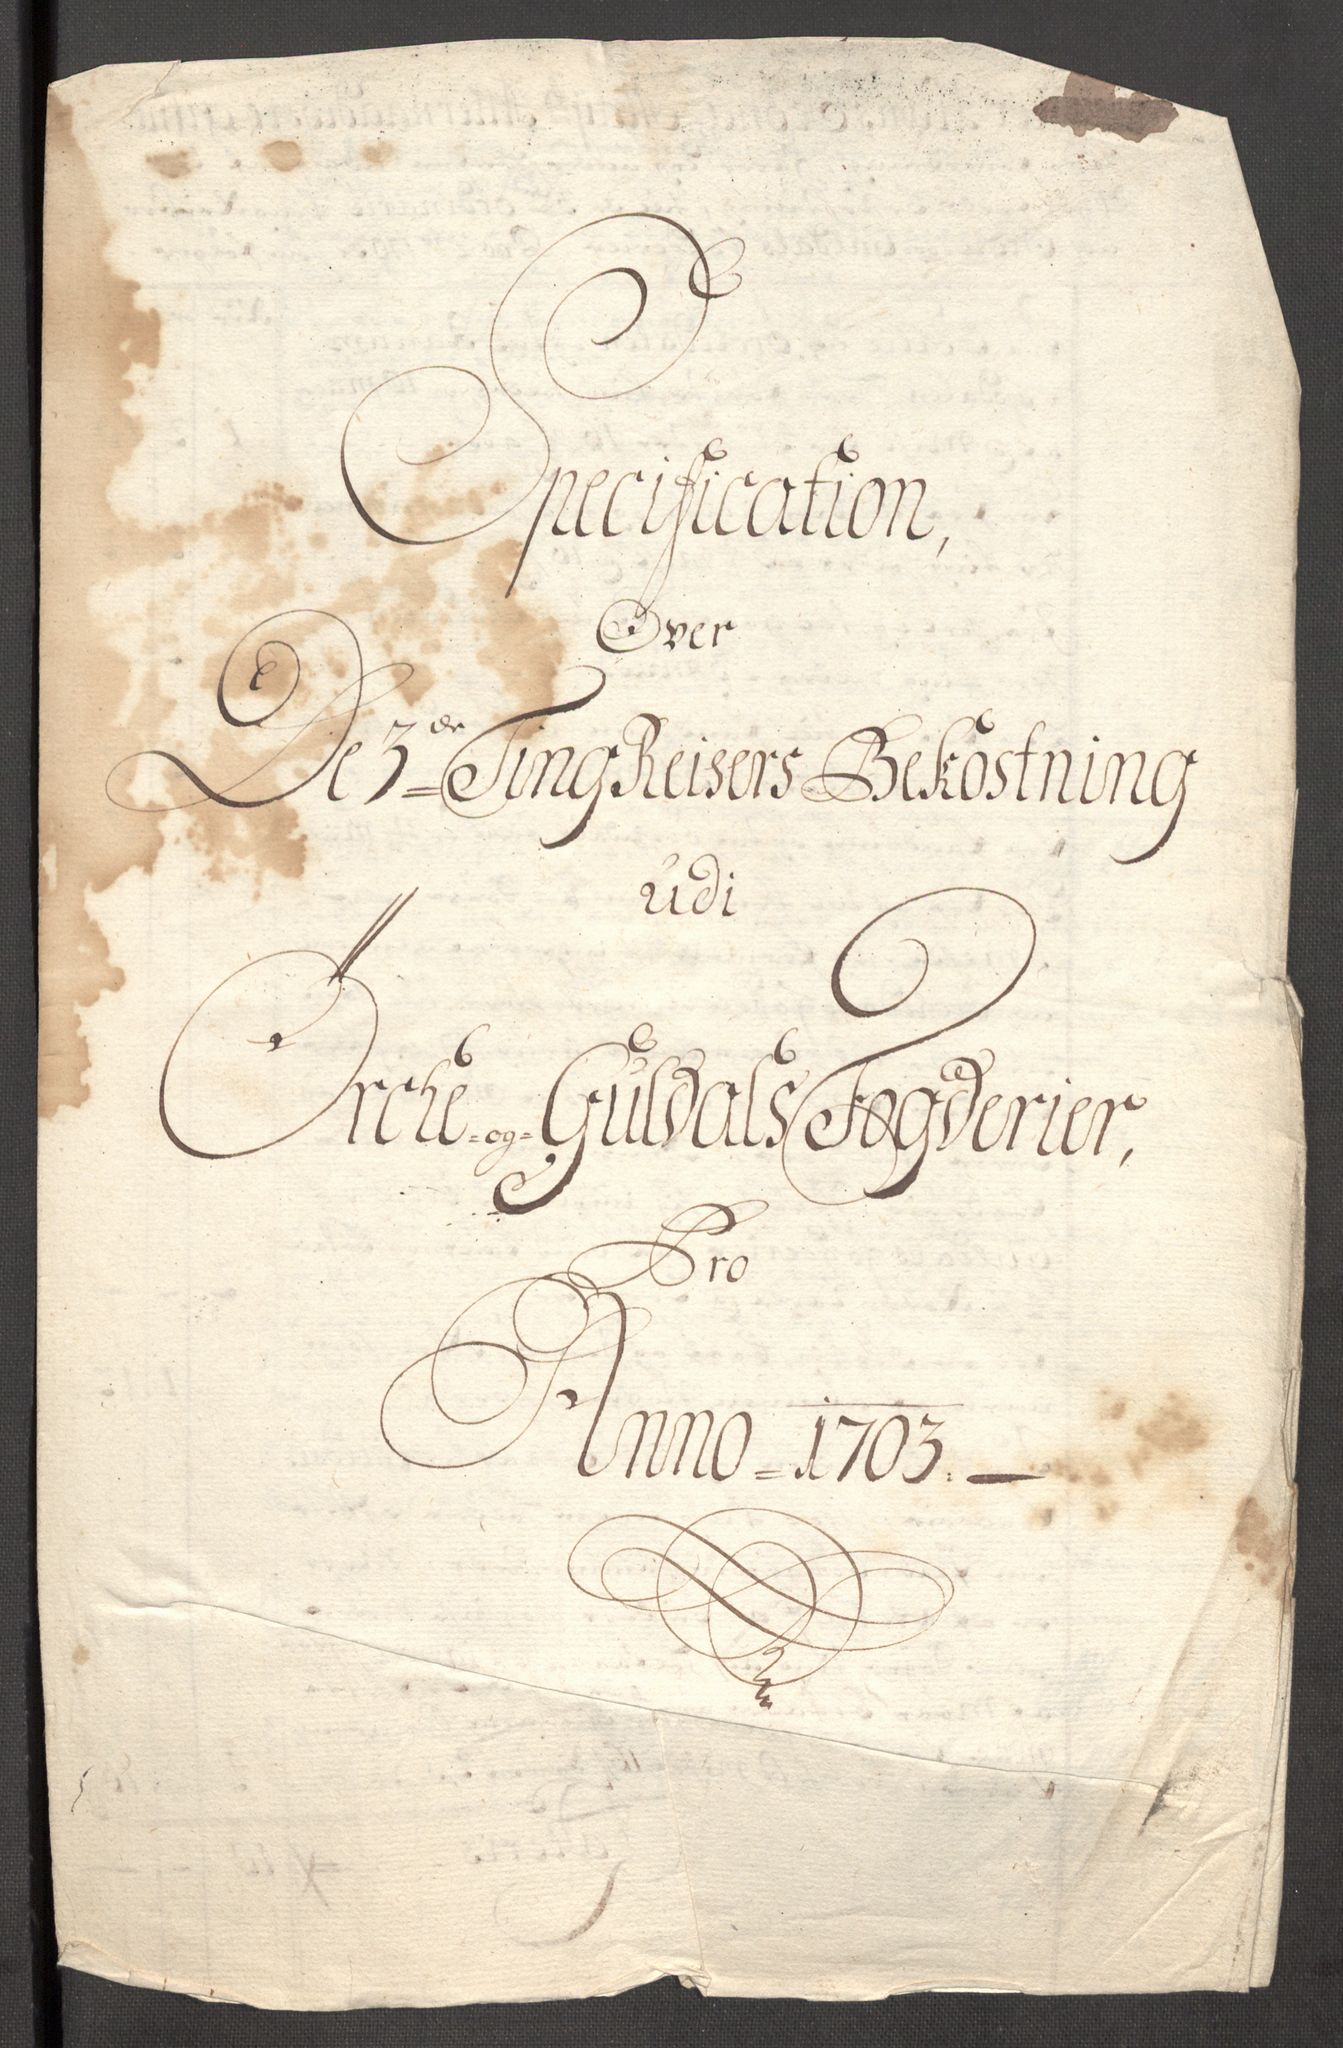 Specification,
Over
De 3de Ting Reisers Bekostning
udi
Örche- og- Guldals Fogderier,
Pro
Anno = 1703. —